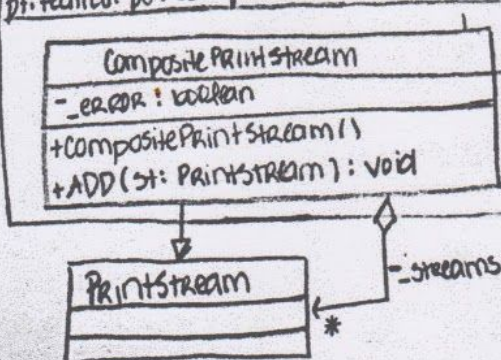 CompositePrintStream
- _ERROR : boolean
+CompositePrintStream()
+ADD(st: PrintStream): void
PrintStream
- _streams
*